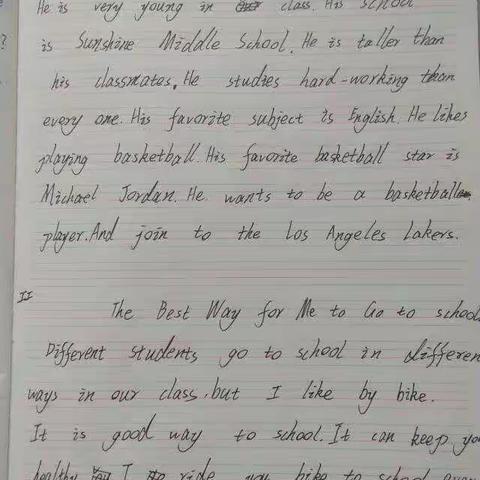 He is very young in class. His school
is Sunshine Middle School. He is taller than
his classmates. He studies hard-working than
every one. His favorite subject is English. He likes
playing basketball. His favorite basketball star is
Michael Jordan. He wants to be a basketball
player. And join to the Los Angeles Lakers.
II
The Best Way for Me to Go to school
Different students go to school in differen
ways in our class, but I like by bike.
It is good way to school. It can keep yo
healthy I ride my bike to school